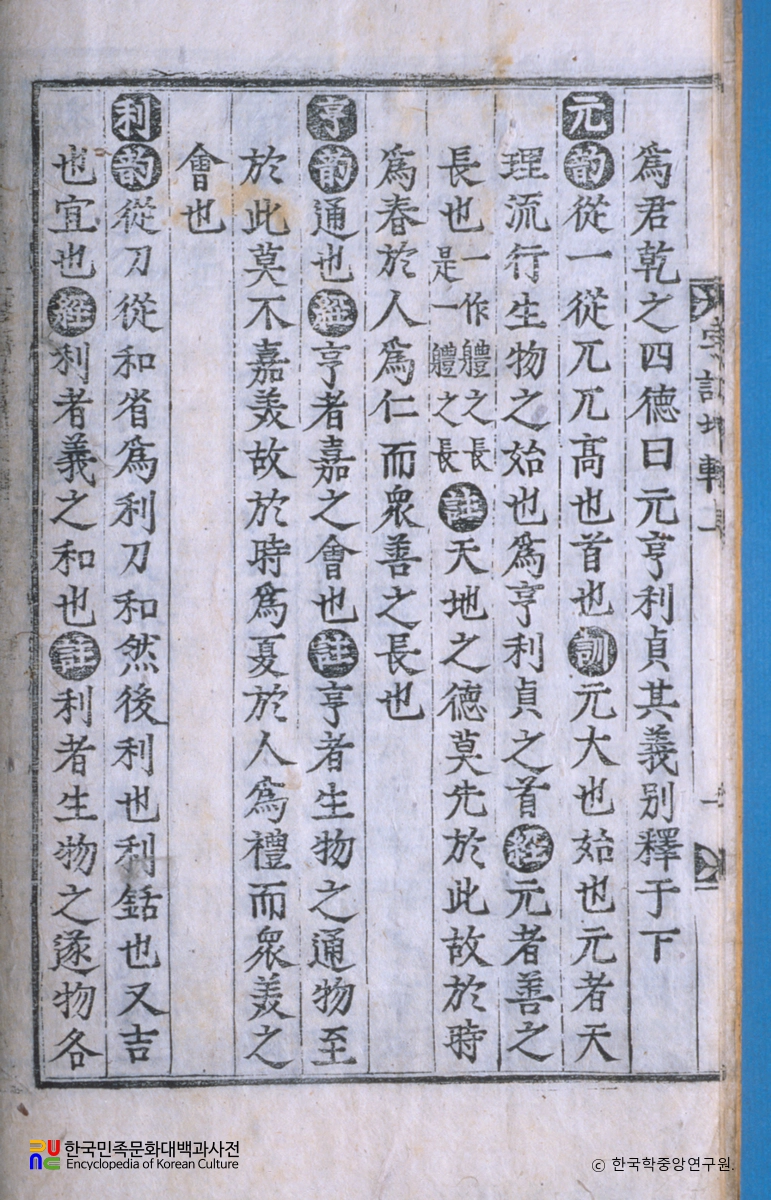 爲君乾之四德曰元亨利貞其義別釋于下
元韵從一從兀兀高也首也訓元大也始也元者天
理流行生物之始也爲亨利貞之首經元者善之
長也一作體之長是一體之長註天地之德莫先於此故於時
爲春於人爲仁而衆善之長也
亨韵通也經亨者嘉之會也註亨者生物之通物至
於此莫不嘉羙故於時爲夏於人爲禮而衆羙之
會也
利韵從刀從和省爲利刀和然後利也利銛也又吉
也宜也經利者義之和也註利者生物之遂物各
한국민족문화대백과사전
Encyclopedia of Korean Culture
ⓒ 한국학중앙연구원.